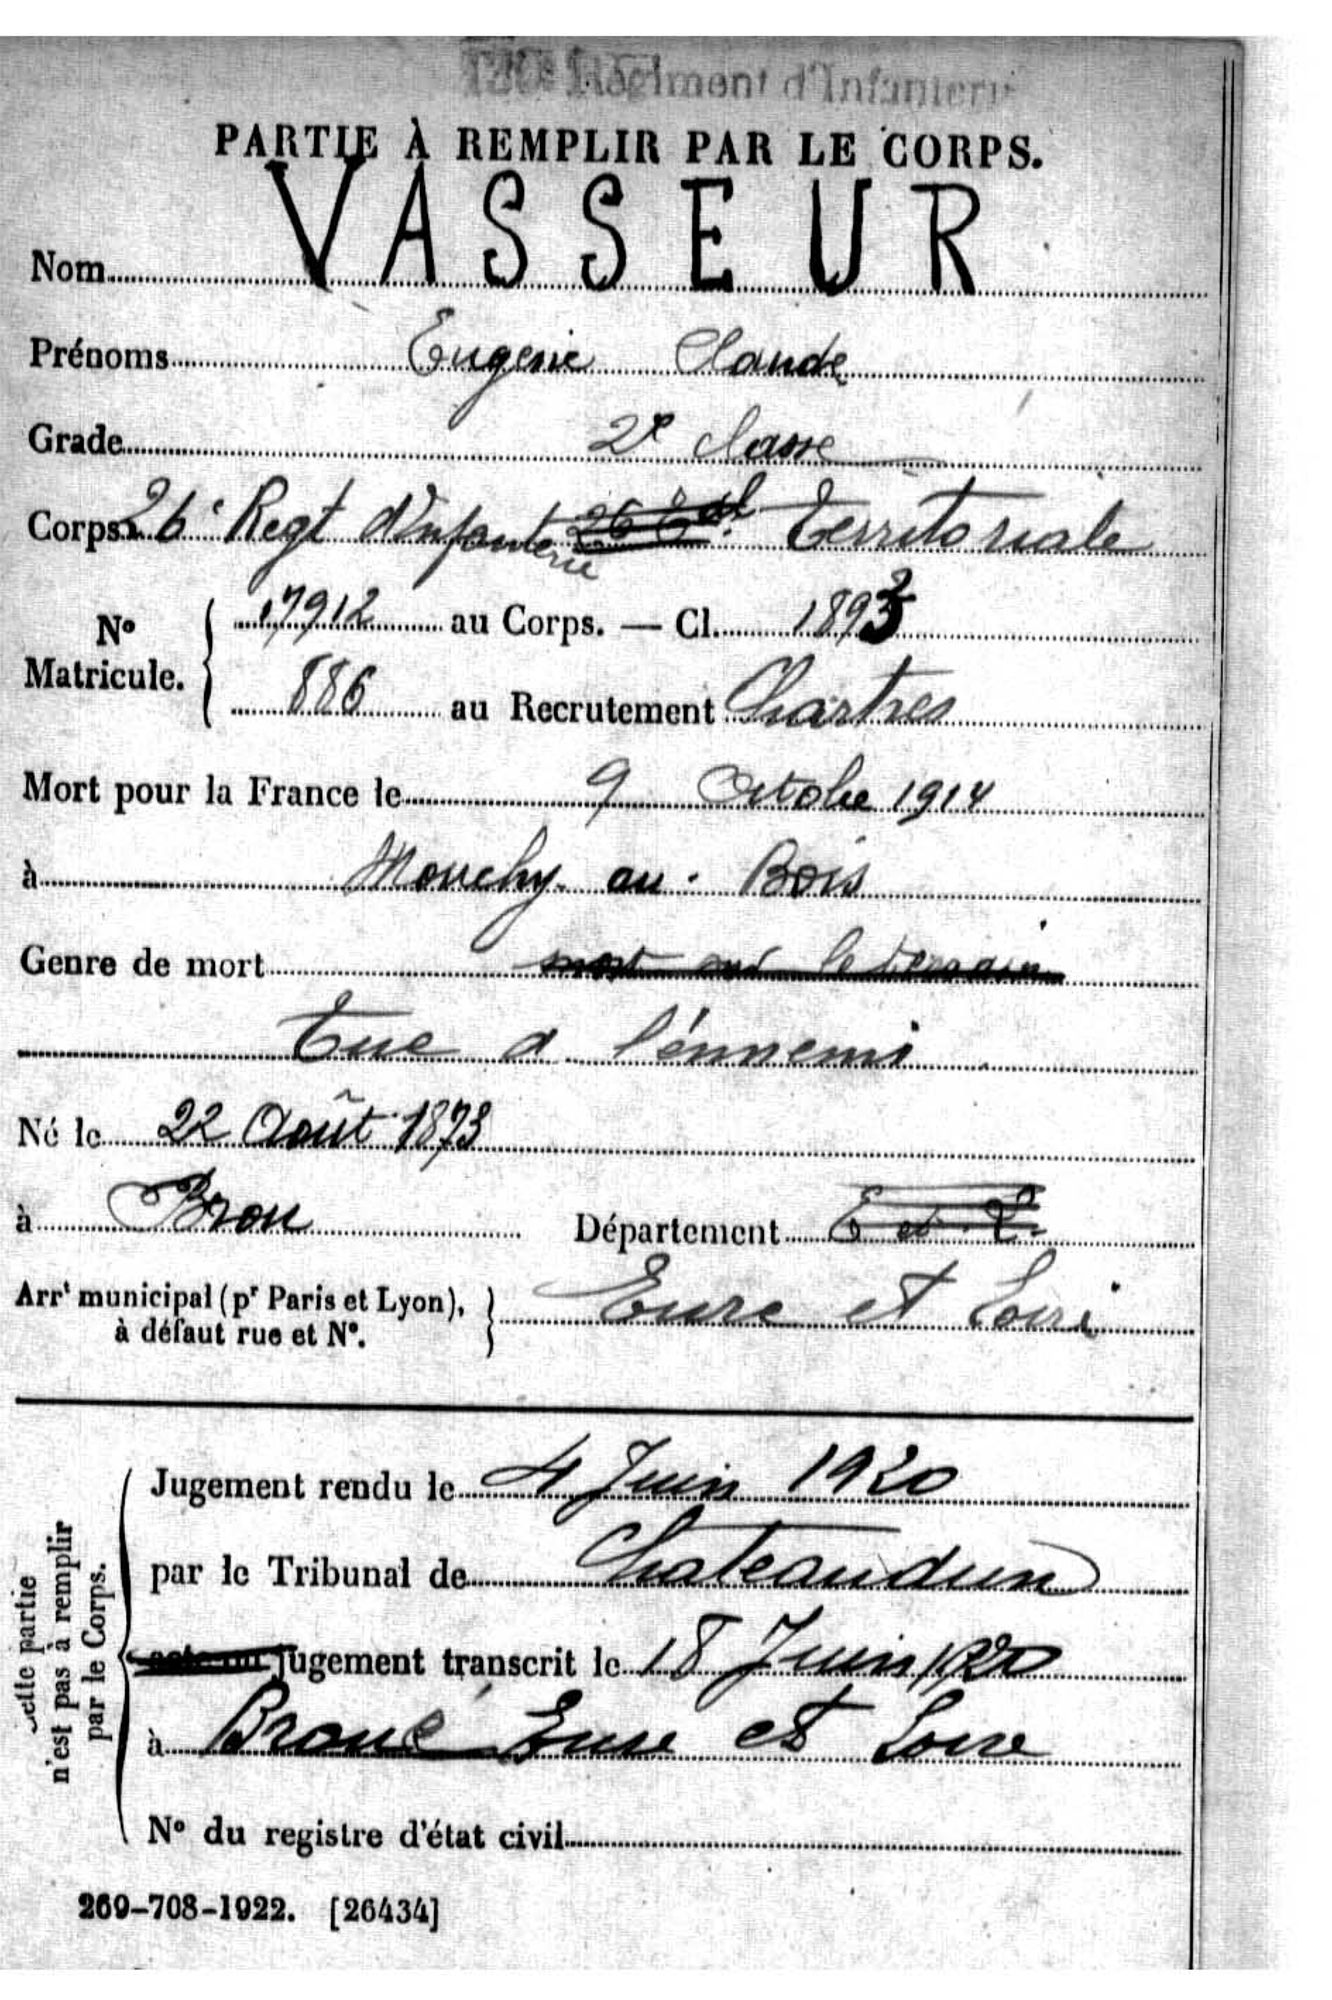 Régiment d'Infanterie
PARTIE À REMPLIR PAR LE CORPS.
Nom VASSEUR
Prénoms Eugène Claude
Grade 2e classe
Corps 26e Regt d'Infanterie 26 Territoriale
No Matricule. 17912 au Corps. — Cl. 1893
886 au Recrutement Chartres
Mort pour la France le 9 Octobre 1914
à Mouchy au Bois
Genre de mort mort sur le terrain
Tué a l'ennemi
Né le 22 Août 1873
à Brou Département E et L
Arrt municipal (pr Paris et Lyon), à défaut rue et No. Eure et Loir
Cette partie n'est pas à remplir par le Corps.
Jugement rendu le 4 Juin 1920
par le Tribunal de Chateaudun
acte ou jugement transcrit le 18 Juin 1920
à Broué Eure et Loire
No du registre d'état civil
269-708-1922. [26434]